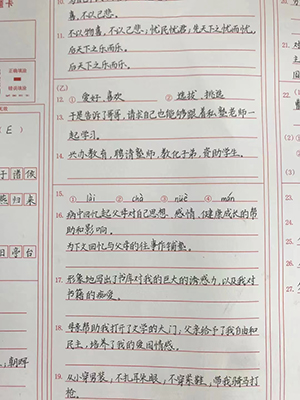 卡
喜,不以己悲。
11. 不以物喜,不以己悲;忧民忧君;先天下之忧而忧,
后天下之乐而乐。
后天下之乐而乐。
(乙)
12. ① 爱好,喜欢 ② 选拔,挑选
13. 于是告诉了哥哥,请求自己也能够跟着私塾老师一
起学习。
14. 兴办教育,聘请塾师,教化子弟,资助学生。
15. ① lài ② chà ③ nüè ④ mán
16. 病中回忆起父母对自己思想、感情、健康成长的帮
助和影响。
为下文回忆与父母的往事作铺垫。
17. 形象地写出了书库对我的巨大的诱惑力,以及我对
书籍的痴爱。
18. 母亲帮助我打开了文学的大门,父亲给予了我自由和
民主,培养了我的爱国情感。
19. 从小穿男装,不扎耳朵眼,不穿紧鞋,带我骑马打
枪。
正确填涂
错误填涂
E )
于 借 侯
归 来
旧 亭 台
,朝晖